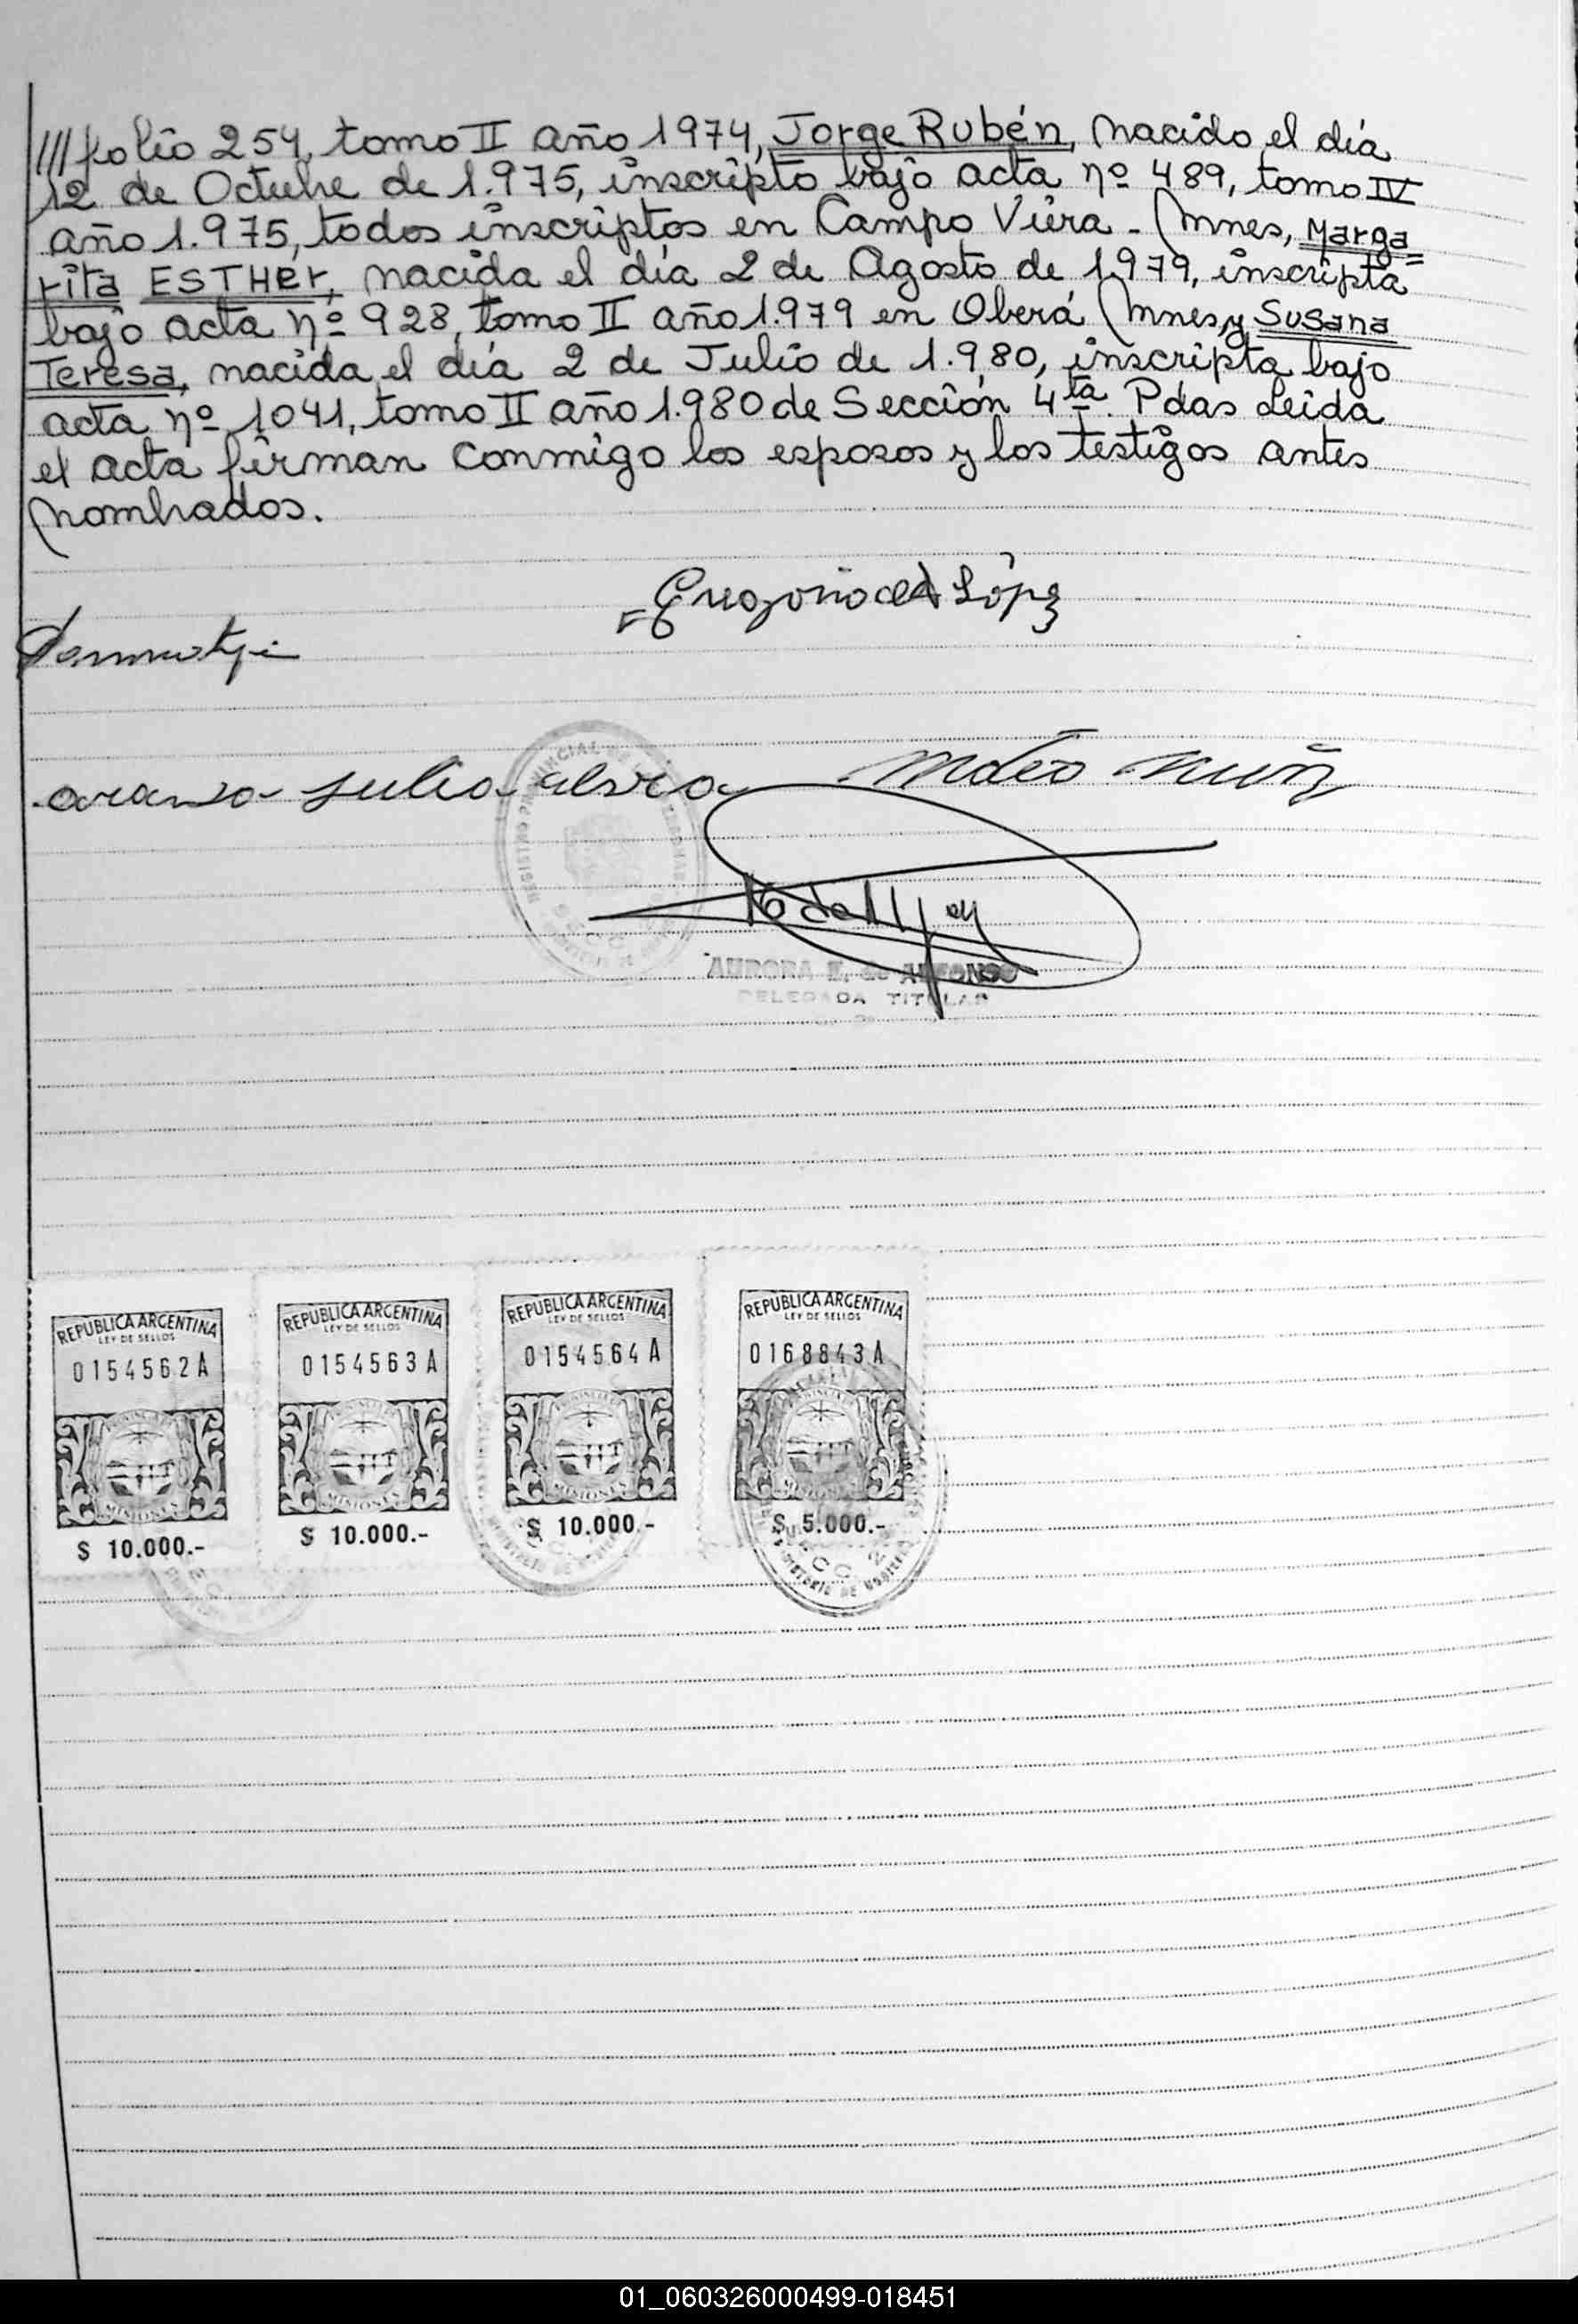 ///folio 254, tomo II año 1974, Jorge Rubén, nacido el día
12 de Octubre de 1.975, inscripto bajo acta nº 489, tomo IV
año 1.975, todos inscriptos en Campo Viera - Mnes, Marga=
rita ESTHer, nacida el día 2 de Agosto de 1979, inscripta
bajo acta nº 928, tomo II año 1.979 en Oberá Mnes, y Susana
Teresa, nacida el día 2 de Julio de 1.980, inscripta bajo
acta nº 1041, tomo II año 1.980 de Sección 4ta. Pdas Leida
el acta firman conmigo los esposos y los testigos antes
nombrados.
Gregorio López
Julio
Mateo
AURORA E. de ALFONSO
DELEGADA TITULAR
REPUBLICA ARGENTINA
LEY DE SELLOS
0154562A
MISIONES
$ 10.000.-
REPUBLICA ARGENTINA
LEY DE SELLOS
0154563A
MISIONES
$ 10.000.-
REPUBLICA ARGENTINA
LEY DE SELLOS
0154564A
MISIONES
$ 10.000.-
REPUBLICA ARGENTINA
LEY DE SELLOS
0168843A
MISIONES
$ 5.000.-
01_060326000499-018451